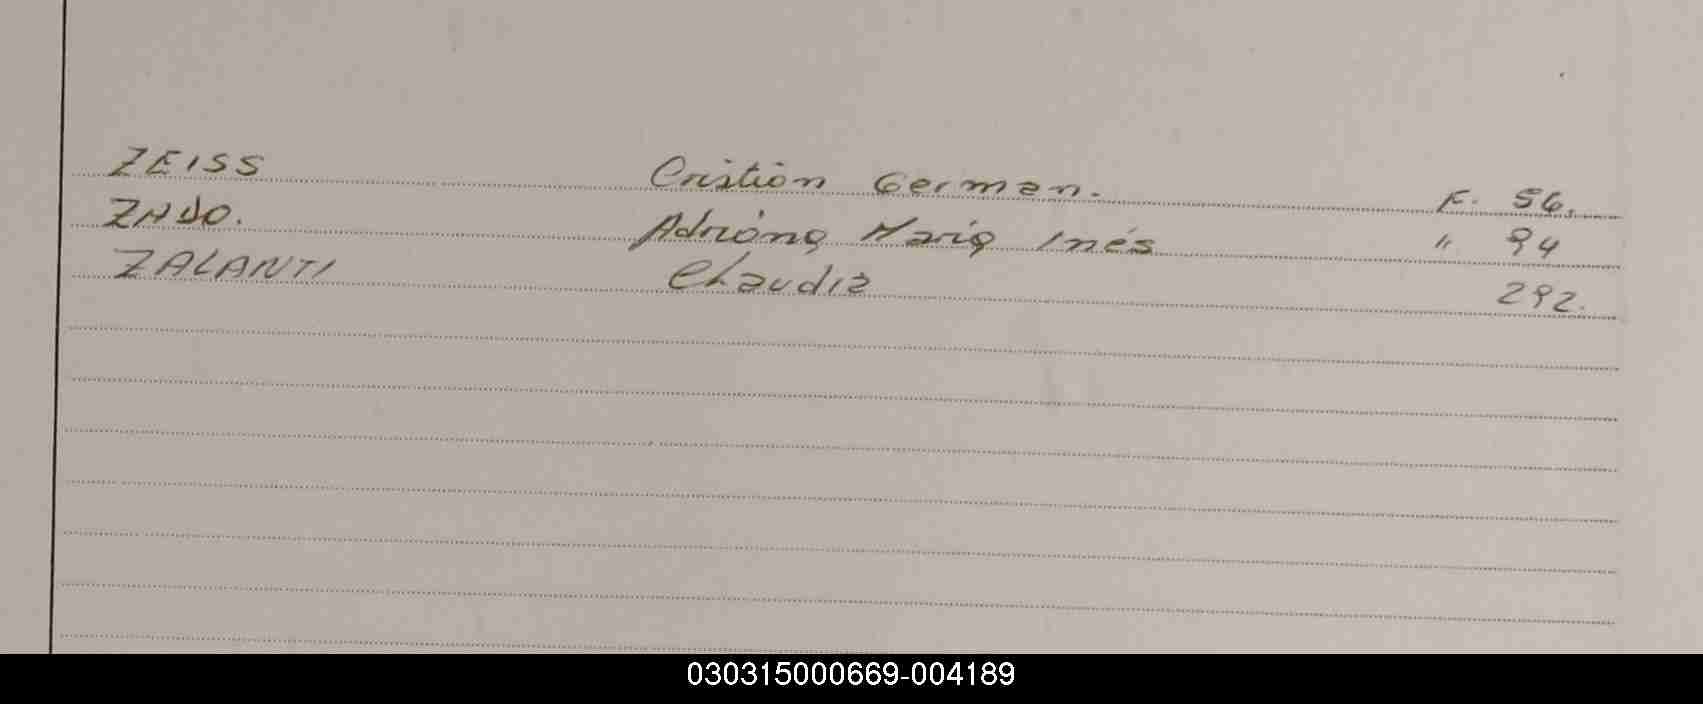 ZEISS Cristián German. F. 56.
Adriana María Inés " 94
ZALANTI Claudia 292.
030315000669-004189